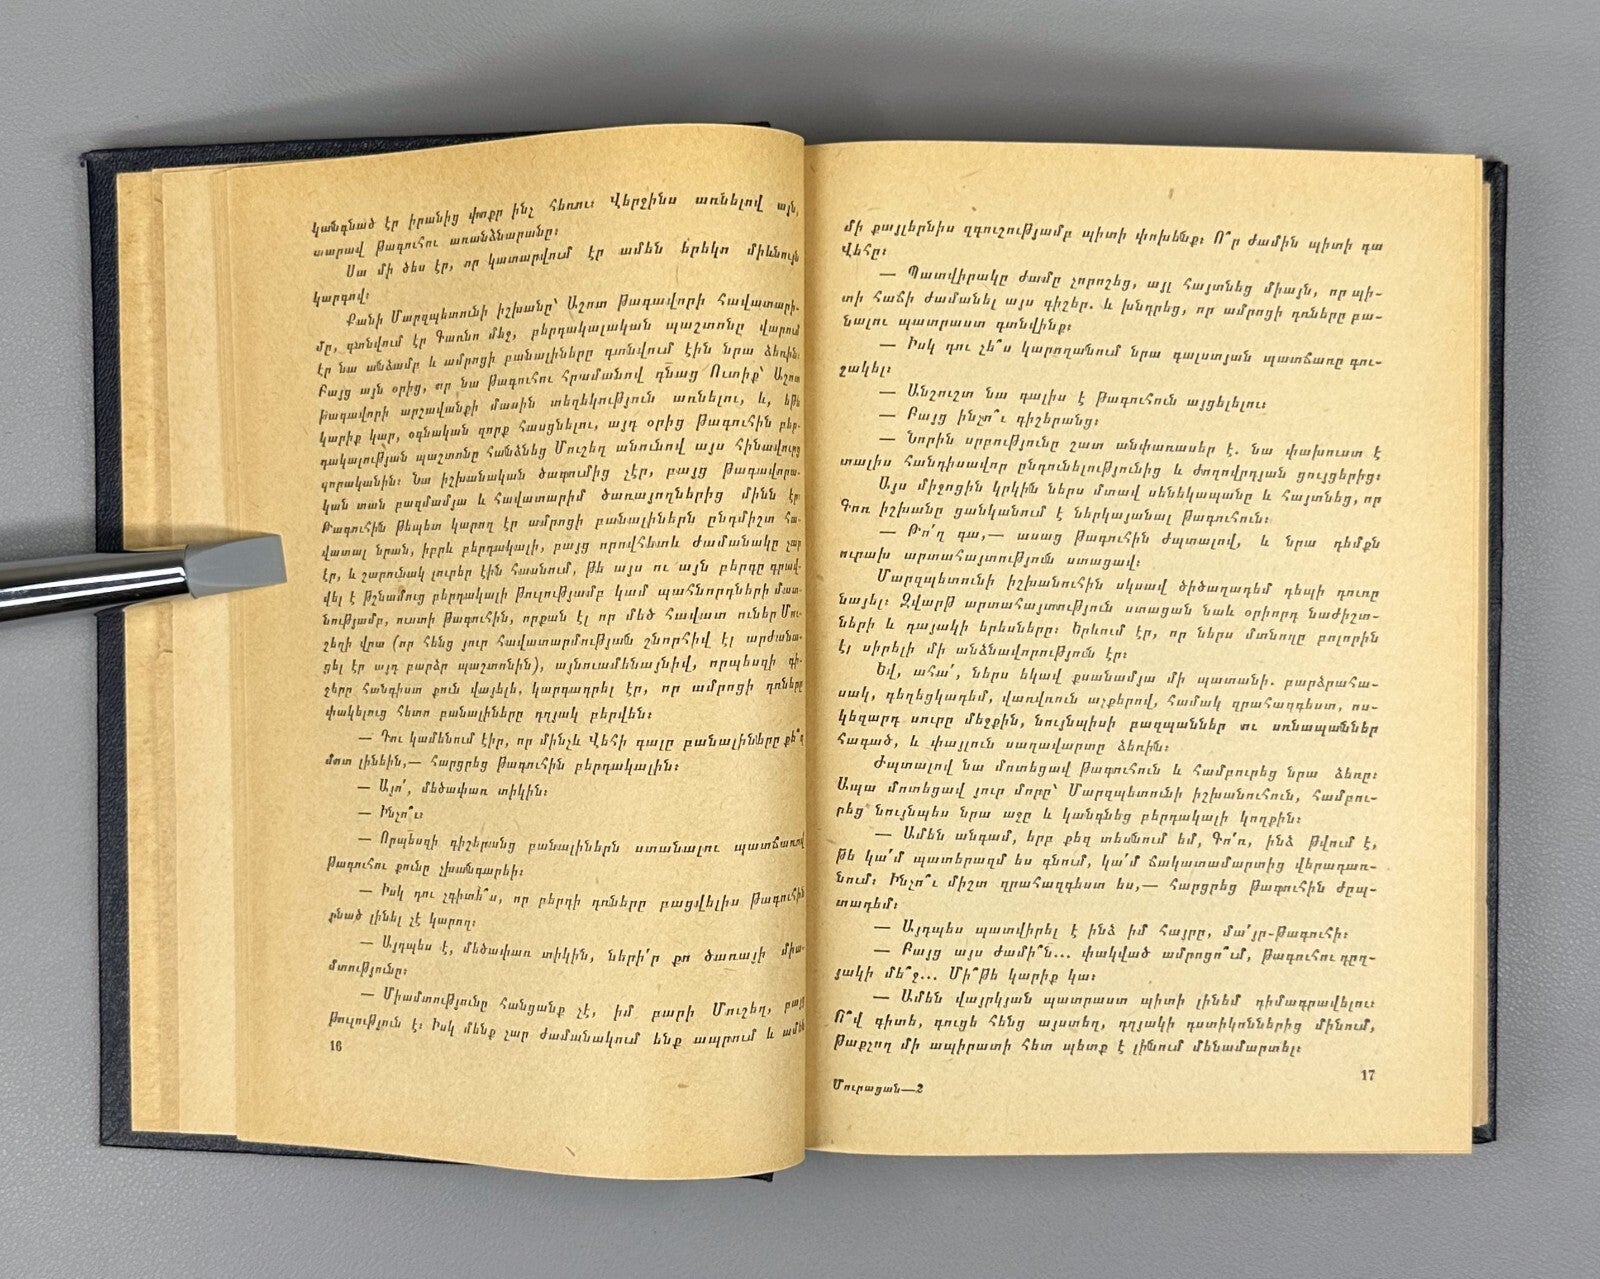 կանգնած էր իրանից փոքր ինչ հեռու։ Վերջինս առնելով այն,
տարավ թագուհու առանձնարանը։
Սա մի ծես էր, որ կատարվում էր ամեն երեկո միևնույն
կարգով։
Քանի Մարզպետունի իշխանը՝ Աշոտ թագավորի հավատարի-
մը, գտնվում էր Գառնո մեջ, բերդակալական պաշտոնը վարում
էր նա անձամբ և ամրոցի բանալիները գտնվում էին նրա ձեռին։
Բայց այն օրից, որ նա թագուհու հրամանով գնաց Ուտիք՝ Աշոտ
թագավորի արշավանքի մասին տեղեկություն առնելու, և, եթե
կարիք կար, օգնական զորք հասցնելու, այդ օրից թագուհին բեր-
դակալության պաշտոնը հանձնեց Մուշեղ անունով այս հինավուրց
զորականին։ Նա իշխանական ծագումից չէր, բայց թագավորա-
կան տան բազմամյա և հավատարիմ ծառայողներից մինն էր։
Թագուհին թեպետ կարող էր ամրոցի բանալիներն ընդմիշտ հա-
վատալ նրան, իբրև բերդակալի, բայց որովհետև ժամանակը չար
էր, և շարունակ լուրեր էին հասնում, թե այս ու այն բերդը գրավ-
վել է թշնամուց բերդակալի թուլությամբ կամ պահնորդների մատ-
նությամբ, ուստի թագուհին, որքան էլ որ մեծ հավատ ուներ Մու-
շեղի վրա (որ հենց յուր հավատարմության շնորհիվ էլ արժանա-
ցել էր այդ բարձր պաշտոնին), այնուամենայնիվ, որպեսզի գի-
շերը հանգիստ քուն վայելե, կարգադրել էր, որ ամրոցի դռները
փակելուց հետո բանալիները դղյակ բերվեն։
— Դու կամենում էիր, որ մինչև Վեհի գալը բանալիները քե՞զ
մոտ լինեին,— հարցրեց թագուհին բերդակալին։
— Այո՛, մեծափառ տիկին։
— Ինչո՞ւ։
— Որպեսզի գիշերանց բանալիներն ստանալու պատճառով
թագուհու քունը չխանգարեի։
— Իսկ դու չգիտե՞ս, որ բերդի դռները բացվելիս թագուհին
քնած լինել չէ կարող։
— Այդպես է, մեծափառ տիկին, ների՛ր քո ծառայի միա-
մտությունը։
— Միամտությունը հանցանք չէ, իմ բարի Մուշեղ, բայց
թուլություն է։ Իսկ մենք չար ժամանակում ենք ապրում և ամեն
16
մի քայլերնիս զգուշությամբ պիտի փոխենք։ Ո՞ր ժամին պիտի գա
Վեհը։
— Պատվիրակը ժամը չորոշեց, այլ հայտնեց միայն, որ պի-
տի հաճի ժամանել այս գիշեր. և խնդրեց, որ ամրոցի դռները բա-
նալու պատրաստ գտնվինք։
— Իսկ դու չե՞ս կարողանում նրա գալստյան պատճառը գու-
շակել։
— Անշուշտ նա գալիս է թագուհուն այցելելու։
— Բայց ինչո՞ւ գիշերանց։
— Նորին սրբությունը շատ անփառասեր է. նա փախուստ է
տալիս հանդիսավոր ընդունելությունից և ժողովրդյան ցույցերից։
Այս միջոցին կրկին ներս մտավ սենեկապանը և հայտնեց, որ
Գոռ իշխանը ցանկանում է ներկայանալ թագուհուն։
— Թո՛ղ գա,— ասաց թագուհին ժպտալով, և նրա դեմքն
ուրախ արտահայտություն ստացավ։
Մարզպետունի իշխանուհին սկսավ ծիծաղադեմ դեպի դուռը
նայել։ Զվարթ արտահայտություն ստացան նաև օրիորդ նաժիշտ-
ների և դայակի երեսները։ Երևում էր, որ ներս մտնողը բոլորին
էլ սիրելի մի անձնավորություն էր։
Եվ, ահա՛, ներս եկավ քսանամյա մի պատանի. բարձրահա-
սակ, գեղեցկադեմ, վառվռուն աչքերով, համակ զրահազգեստ, ոս-
կեզարդ սուրը մեջքին, նույնպիսի բազպաններ ու սռնապաններ
հագած, և փայլուն սաղավարտը ձեռին։
Ժպտալով նա մոտեցավ թագուհուն և համբուրեց նրա ձեռը։
Ապա մոտեցավ յուր մորը՝ Մարզպետունի իշխանուհուն, համբու-
րեց նույնպես նրա աջը և կանգնեց բերդակալի կողքին։
— Ամեն անգամ, երբ քեզ տեսնում եմ, Գո՛ռ, ինձ թվում է,
թե կա՛մ պատերազմ ես գնում, կա՛մ ճակատամարտից վերադառ-
նում։ Ինչո՞ւ միշտ զրահազգեստ ես,— հարցրեց թագուհին ժըպ-
տադեմ։
— Այդպես պատվիրել է ինձ իմ հայրը, մա՛յր-թագուհի։
— Բայց այս ժամի՞ն... փակված ամրոցո՞ւմ, թագուհու դըղ-
յակի մե՞ջ... Մի՞թե կարիք կա։
— Ամեն վայրկյան պատրաստ պիտի լինեմ դիմագրավելու։
Ո՞վ գիտե, գուցե հենց այստեղ, դղյակի դստիկոններից մինում,
թաքչող մի ապիրատի հետ պետք է լինում մենամարտել։
17
Մուրացան—2